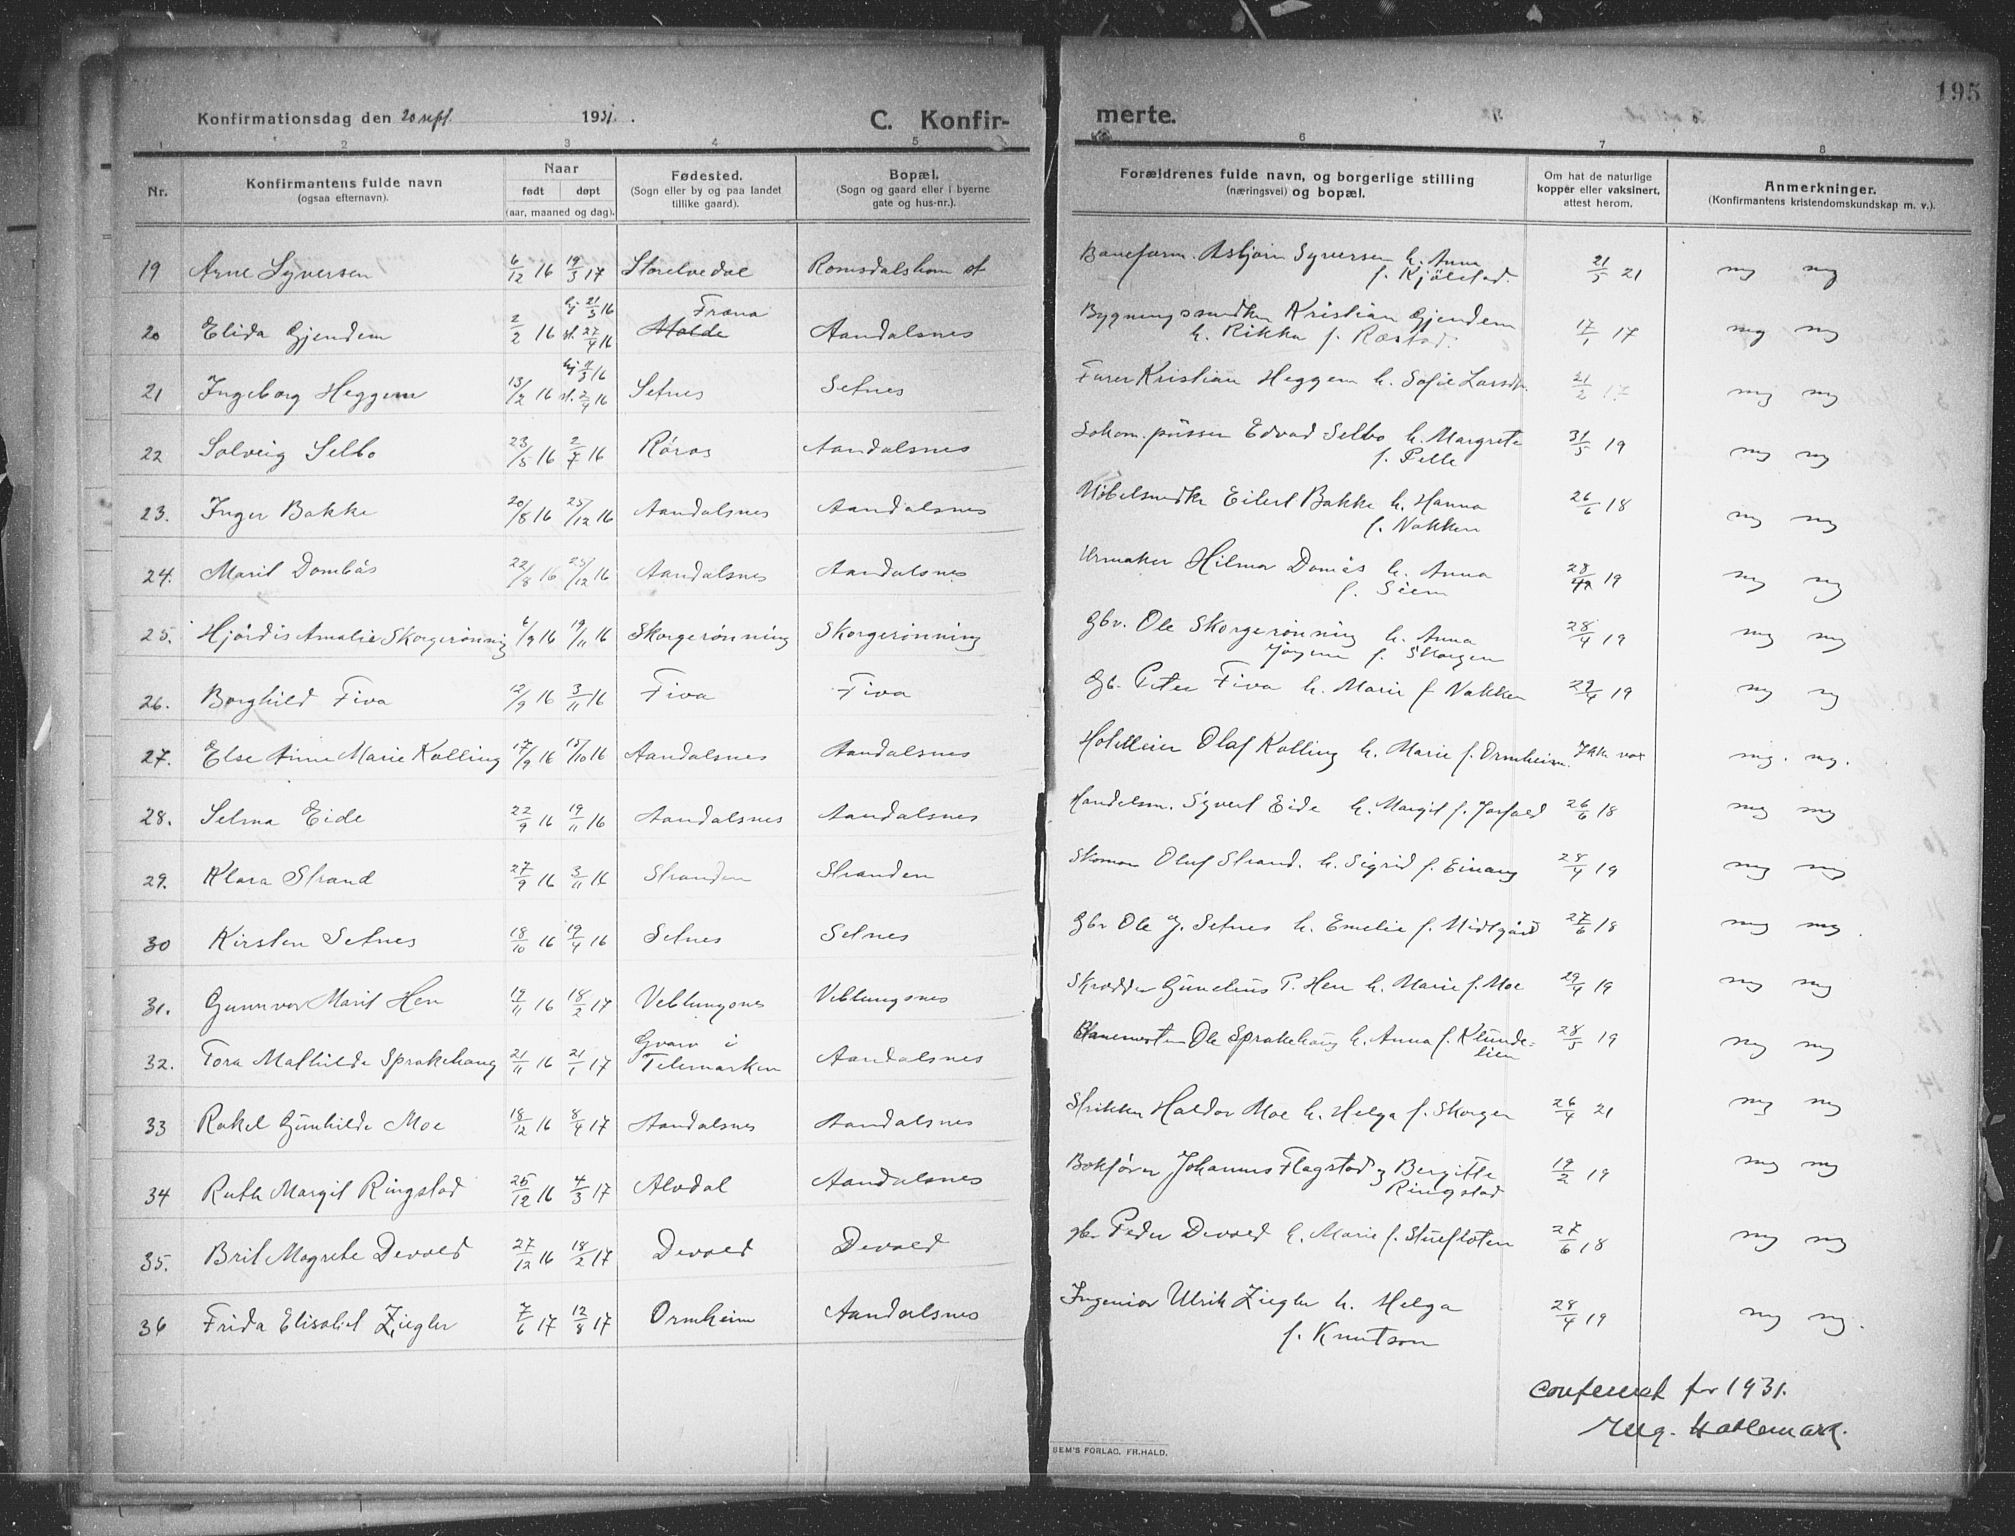 195
Konfirmationsdag den 20 sept. 1931. C. Konfirmerte.
1 2 3 4 5 6 7 8
Nr. Konfirmantens fulde navn (ogsaa efternavn). Naar født døpt (aar, maaned og dag). Fødested. (Sogn eller by og paa landet tillike gaard). Bopæl. (Sogn og gaard eller i byerne gate og hus-nr.). Forældrenes fulde navn, og borgerlige stilling (næringsvei) og bopæl. Om hat de naturlige kopper eller vaksinert, attest herom. Anmerkninger. (Konfirmantens kristendomskundskap m. v.).
19 Arne Syversen 6/12 16 19/3 17 Storelvedal Romsdalshorn st Baneform. Asbjørn Syversen h. Anna f. Kjølstad. 21/5 21 mg mg
20 Elida Gjendem 2/2 16 hj 21/3 16 st. 27/4 16 Molde Fræna Aandalsnes Bygningssnedker Kristian Gjendem h. Rikka f. Ræstad. 17/1 17 mg mg
21 Ingeborg Heggem 13/2 16 hj 11/3 16 st. 2/4 16 Setnes Setnes Furer Kristian Heggem h. Sofie Larsdtr. 21/2 17 mg mg
22 Solveig Selbo 23/5 16 2/7 16 Røros Aandalsnes Lokom. pusser Edvad Selbo h. Margrete f. Pelle 31/5 19 mg mg
23. Inger Bakke 20/8 16 25/12 16 Aandalsnes Aandalsnes Møbelsnedkr Eilert Bakke h. Hanna f. Nakken 26/6 18 mg mg
24. Marit Dombås 22/8 16 25/12 16 Aandalsnes Aandalsnes Urmaker Hilmar Domås h. Anna f. Siem 28/4 19 mg mg
25. Hjørdis Amalie Skorgerønning 6/9 16 19/11 16 Skorgerønning Skorgerønning Gbr. Ole Skorgerønning h. Anna Jørgine f. Skorgen 28/4 19 mg mg
26. Borghild Fiva 12/9 16 3/11 16 Fiva Fiva Gb. Peter Fiva h. Marie f. Nakken 29/4 19 mg mg
27. Else Anne Marie Kolling 17/9 16 15/10 16 Aandalsnes Aandalsnes Hotelleier Olaf Kolling h. Marie f. Ormheim. Ikke vax mg. mg.
28. Selma Eide 22/9 16 19/11 16 Aandalsnes Aandalsnes Handelsm. Syvert Eide h. Margit f. Jarfald 26/6 18 mg mg
29. Klara Strand 27/9 16 3/11 16 Stranden Stranden Skomar Oluf Strand. h. Sigrid f. Einang 28/4 19 mg mg
30 Kirsten Setnes 18/10 16 19/4 16 Setnes Setnes Gbr Ole J. Setnes h. Emelie f. Midtgård 27/6 18 mg mg.
31. Gunnvor Marit Hen 19/11 16 18/2 17 Veblungsnes Veblungsnes Skrædder Gunelius P. Hen h. Marie f. Moe 29/4 19 mg mg
32. Tora Mathilde Sprakehaug 21/11 16 21/1 17 Gvarv i Telemarken Aandalsnes Banemester Ole Sprakehaug h. Anna f. Klundelien 28/5 19 mg mg
33 Rakel Gunhilde Moe 18/12 16 8/4 17 Aandalsnes Aandalsnes Strikker Haldor Moe h. Helga f. Skorgen 26/4 21 mg mg
34 Ruth Margit Ringstad 25/12 16 4/3 17 Alvdal Aandalsnes Bokfører Johannes Flagstad og Bergitte Ringstad 19/2 19 mg mg
35. Brit Magrete Devold 27/12 16 18/2 17 Devold Devold gbr Peder Devold h. Marie f. Stuefloten 27/6 18 mg mg
36 Frida Elisabet Ziegler 7/6 17 12/8 17 Ormheim Aandalsnes Ingeniør Ulrik Ziegler h. Helga f. Knutson 28/4 19 mg mg.
Conferert for 1931.
SEM'S FORLAG, FR.HALD.